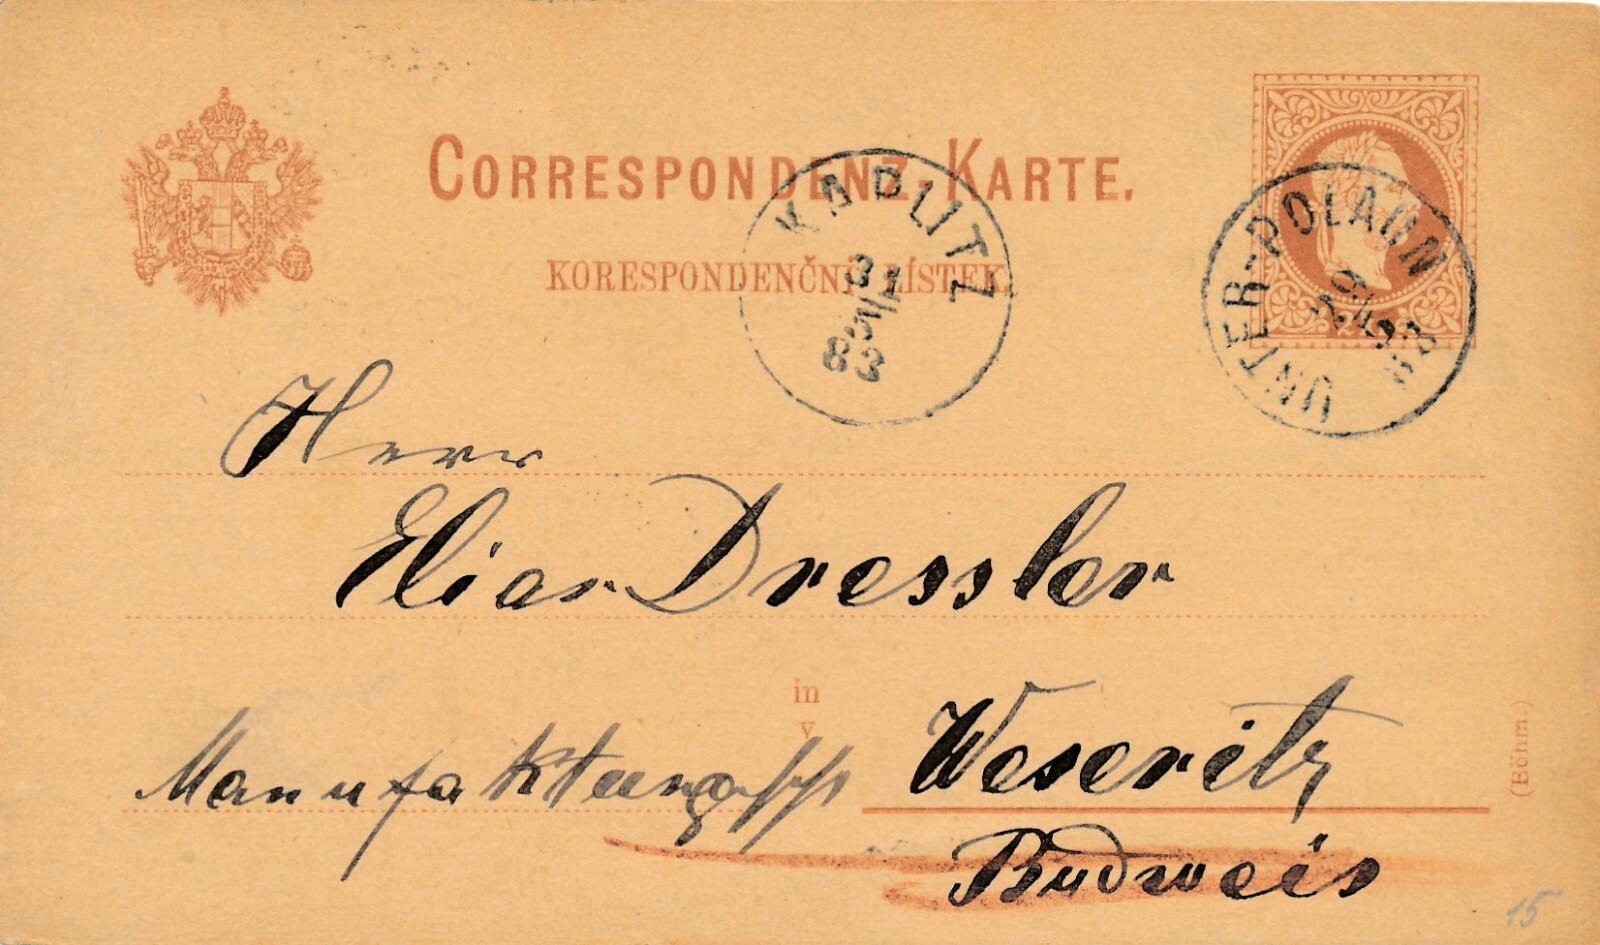 CORRESPONDENZ-KARTE.
KORESPONDENČNÍ LÍSTEK
KAPLITZ
31
5
83
UNTER-POLAUN
29
83
Herr
Elias Dressler
in
v
Weseritz
Budweis
(Böhm.)
15